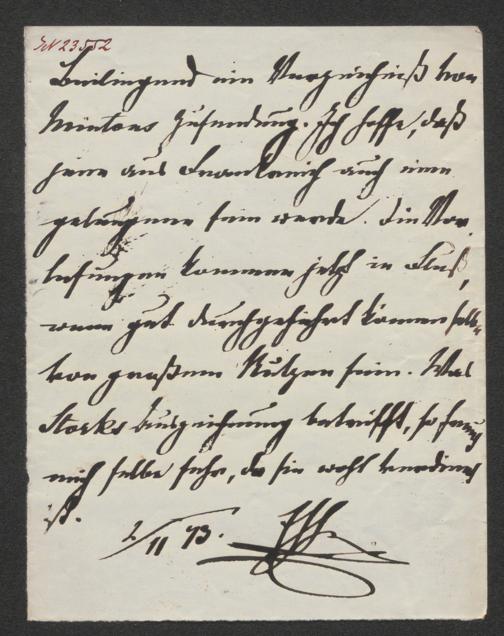 IN 23552
Beiliegend ein Verzeichniß von
Mintons Zusendung. Ich hoffe, daß
jene aus Frankreich auch eine
gelungene sein werde. Die Vor
lesungen kommen jetzt in Fluß,
wenn gut durchgeführt können selbe
von großem Nutzen sein. Was
Storks Auszeichnung betrifft, so freut
mich selbe sehr, da sie wohl verdient
ist.
2/11 73.